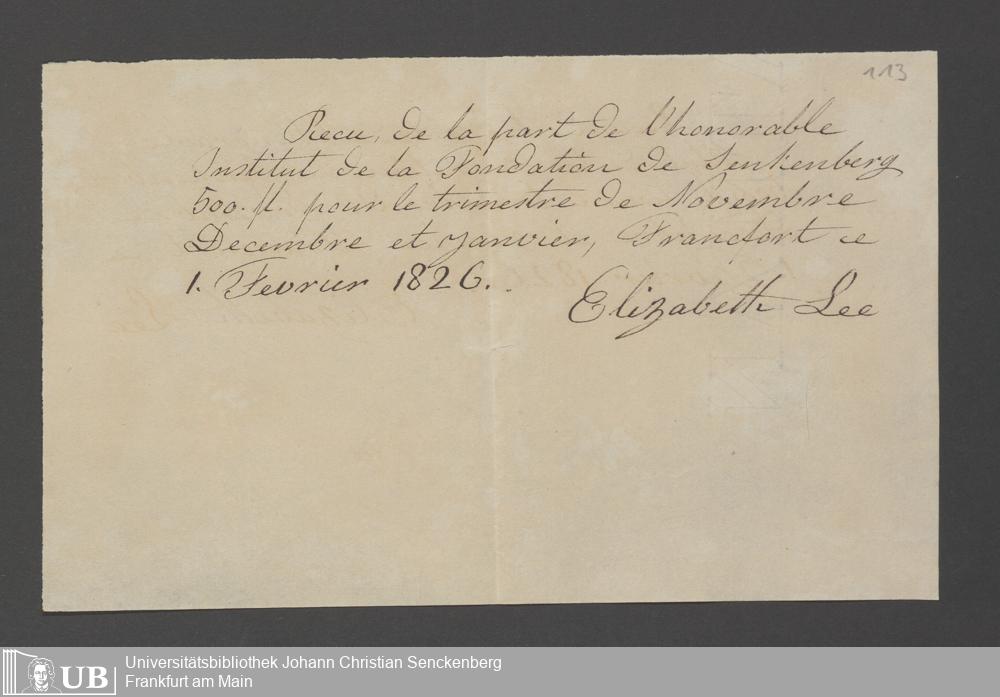 113
Recu, de la part de l'honorable
Institut de la Fondation de Senkenberg
500. fl. pour le trimestre de Novembre
Decembre et Janvier, Francfort ce
1. Fevrier 1826.
Elizabeth Lee
UB
Universitätsbibliothek Johann Christian Senckenberg
Frankfurt am Main